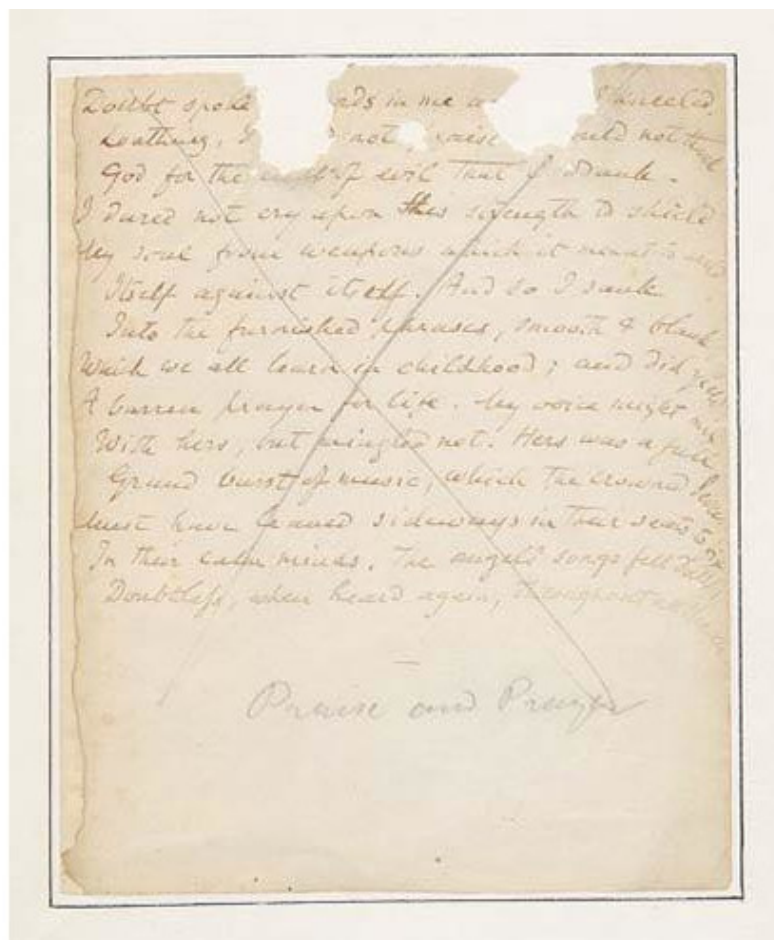 Doubt spoke ds in me I kneeled.
Loathing, I not raise ould not
God for the of evil that I drank.
I dared not cry upon His strength to shield
My soul from weapons which it meant to
Itself against itself. And so I sank
Into the furnished phrases, smooth & blank
Which we all learn in childhood; and did yield
A barren prayer for life. My voice might mix
With hers, but mingled not. Hers was a full
Grand burst of music, which the crowned
Must have leaned sideways in their seats to fix
In their calm minds. The angels' songs fell
Doubtless, when heard again, throughout
Praise and Prayer